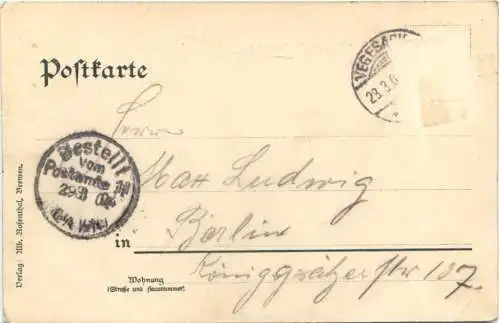 Postkarte
VEGESACK
28.3.0
Herrn
Bestellt
vom
Postamte
29/3
Max Ludwig
in
Berlin
Königgrätzerstr 107.
Wohnung
(Straße und Hausnummer)
Verlag: Alb. Rosenthal, Bremen.